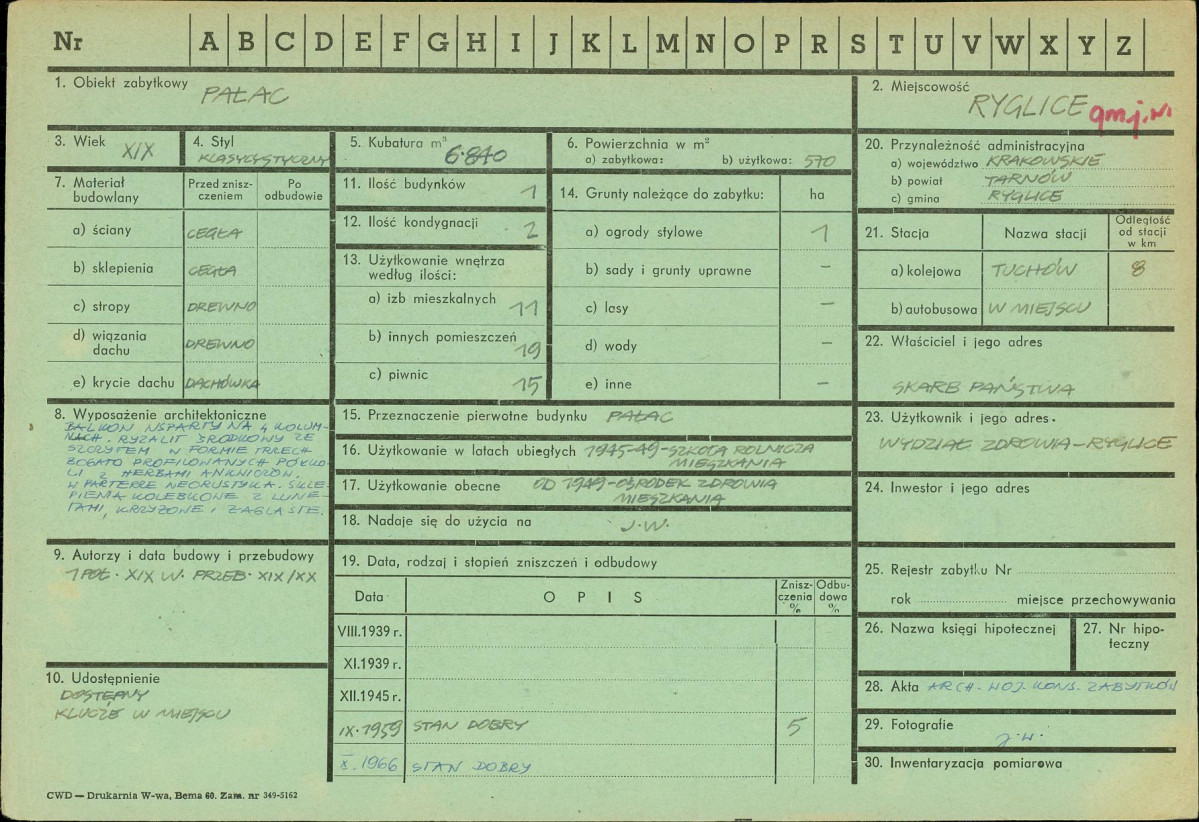 Nr A B C D E F G H I J K L M N O P R S T U V W X Y Z
1. Obiekt zabytkowy
PAŁAC
2. Miejscowość
RYGLICE gm.j.w.
3. Wiek XIX
4. Styl
KLASYCYSTYCZNY
5. Kubatura m³
6.840
6. Powierzchnia w m²
a) zabytkowa: b) użytkowa: 570
7. Materiał budowlany
Przed zniszczeniem
Po odbudowie
a) ściany CEGŁA
b) sklepienia CEGŁA
c) stropy DREWNO
d) wiązania dachu DREWNO
e) krycie dachu DACHÓWKA
8. Wyposażenie architektoniczne
BALKON WSPARTY NA 4 KOLUM-
NACH. RYZALIT ŚRODKOWY ZE
SZCZYTEM W FORMIE TRZECH
BOGATO PROFILOWANYCH PÓŁKO-
LI Z HERBAMI ANKWICZÓW.
W PARTERZE NEORUSTYKA. SKLE-
PIENIA KOLEBKOWE Z LUNE-
TAMI, KRZYŻOWE I ŻAGLASTE.
9. Autorzy i data budowy i przebudowy
1 POŁ. XIX W. PRZEB. XIX/XX
10. Udostępnienie
DOSTĘPNY
KLUCZE W MIEJSCU
11. Ilość budynków 1
12. Ilość kondygnacji 2
13. Użytkowanie wnętrza
według ilości:
a) izb mieszkalnych 11
b) innych pomieszczeń 19
c) piwnic 15
14. Grunty należące do zabytku: ha
a) ogrody stylowe 1
b) sady i grunty uprawne –
c) lasy –
d) wody –
e) inne –
15. Przeznaczenie pierwotne budynku PAŁAC
16. Użytkowanie w latach ubiegłych 1945-49-SZKOŁA ROLNICZA
MIESZKANIA
17. Użytkowanie obecne OD 1949-OŚRODEK ZDROWIA
MIESZKANIA
18. Nadaje się do użycia na J.W.
19. Data, rodzaj i stopień zniszczeń i odbudowy
Data OPIS Zniszczenia % Odbudowa %
VIII.1939 r.
XI.1939 r.
XII.1945 r.
IX.1959 STAN DOBRY 5
X.1966 STAN DOBRY
20. Przynależność administracyjna
a) województwo KRAKOWSKIE
b) powiat TARNÓW
c) gmina RYGLICE
21. Stacja Nazwa stacji Odległość od stacji w km
a) kolejowa TUCHÓW 8
b) autobusowa W MIEJSCU
22. Właściciel i jego adres
SKARB PAŃSTWA
23. Użytkownik i jego adres.
WYDZIAŁ ZDROWIA-RYGLICE
24. Inwestor i jego adres
25. Rejestr zabytku Nr
rok miejsce przechowywania
26. Nazwa księgi hipotecznej
27. Nr hipo-
teczny
28. Akta ARCH. WOJ. KONS. ZABYTKÓW
29. Fotografie
J.W.
30. Inwentaryzacja pomiarowa
CWD — Drukarnia W-wa, Bema 60. Zam. nr 349-5162